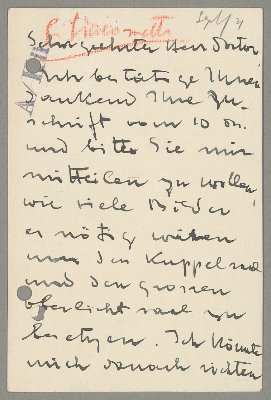 Sehr geehrter Herr Doctor!
Ich bestätige Ihnen
dankend Ihre Zu-
schrift vom 10 ds.
und bitte Sie mir
mitteilen zu wollen
wie viele Bilder
es nötig wären
um den Kuppelsaal
und den grossen
oberlicht saal zu
besetzen. Ich könnte
mich danach richten